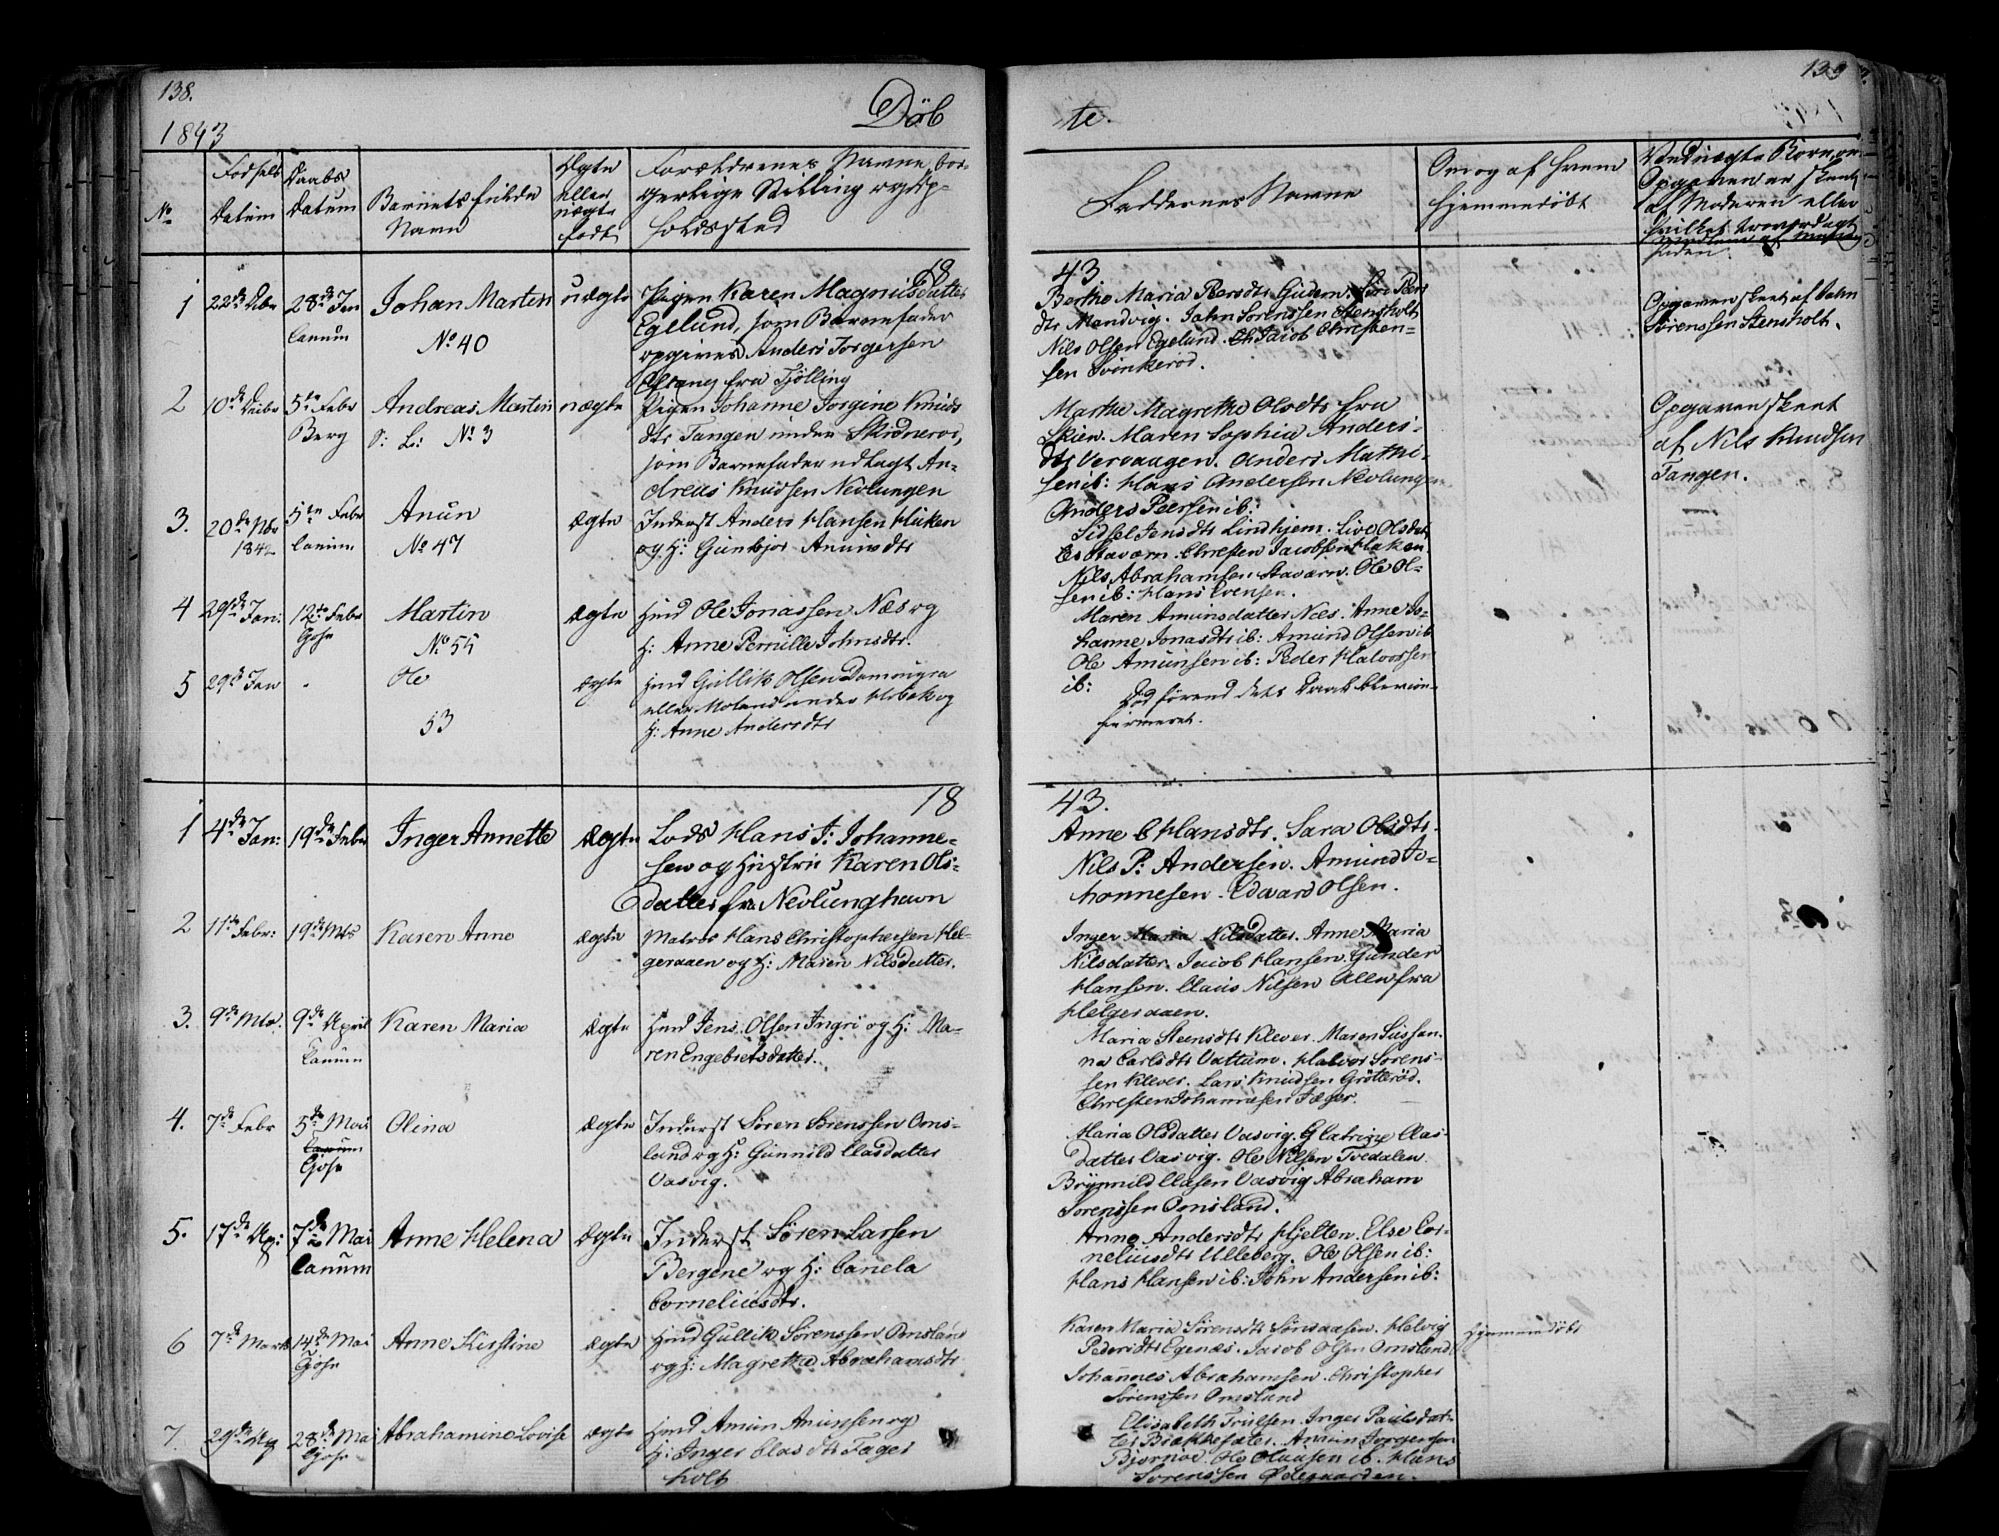 138.
139
1843
Döb
te.
No
Fødsels
Datum
Daabs
Datum
Barnets fulde
Navn
Ægte
eller
uægte
født
Forældrenes Navne, bor-
gerlige Stilling og Op-
holdssted
Faddernes Navne
Om og af hvem
hjemmedøbt
Opgaven er skeet
af Moderen eller
18
43
1 22de Dbr 28de Jan Johan Martin uægte Pigen Karen Magnusdatter
Canum No 40 Egelund, som Barnefader
opgives Anders Torgersen
fra Tjølling
Berthe Maria Peersdtr
dtr Mandvig. John Sørenssen Stensholt
Nils Olsen Egelund. Jacob Christen-
sen
Opgaven skeet af John
Sørenssen Stensholt.
2 10de 5te Febr Andreas Martin uægte Pigen Johanne Jorgine Knuds
Berg No 3 dtr Tangen under
som Barnefader udlagt An-
dreas Knudsen Nevlungen
Marthe Magrethe Olsdtr fra
Skien. Maren Sophia Anders-
dtr Vervaagen. Anders Mathi-
sen ib: Hans Andersen Nevlungen
Anders Peersen ib:
Opgaven skeet
af Nils Knudsen
Tangen.
3. 20de Nbr 5te Febr Anun ægte Inderst Anders Hansen Haken
1842 Canum No 47 og H: Gunbjør Anunsdtr
Sidsel Jensdtr Lindhjem. Live Olsdat
ter Stavern. Christen Jacobsen Haken
Nils Abrahamsen Stavern. Ole Ol-
sen ib: Hans Evensen.
4 29de Jan: 12te Febr Martin ægte Hmd Ole Jonassen Næs og
Gjøn No 55 H: Anne Pernille Johnsdtr.
Maren Amunsdatter Næs. Anne Jo-
hanne Jonasdtr ib: Amund Olsen ib
Ole Amunsen ib: Peder Halvorsen
ib:
5 29de Jan - Ole ægte Hmd Gullik Olsen
53 eller Moland under Hobek og
H: Anne Andersdtr
Død førend dets Daab blev con-
firmeret.
18
43.
1 4de Jan: 19de Febr Inger Annette ægte Lods Hans J: Johanne-
sen og Hustru Karen Ols-
datter fra Nevlunghavn
Anne C Hansdtr. Sara Olsdtr.
Nils P: Andersen. Amund Jo-
hannesen. Edvard Olsen.
2 11te Febr: 19de Mts Karen Anne ægte Matros Hans Christophersen Hel-
geraaen og H: Maren Nilsdatter.
Inger Maria Nilsdatter. Anne Maria
Nilsdatter. Jacob Hansen. Gunder
Hansen. Claus Nilsen Alle fra
Helgeraaen.
3. 9de Mts. 9de April Karen Maria ægte Hmd Jens Olsen Ingri og H: Ma-
Canum ren Engebretsdatter.
Maria Steensdtr Klever. Maren Sussan-
na Carlsdtr Vattum. Halvor Sørens-
sen Klever. Lars Knudsen Grøtterød.
Christen Johannesen Jæger.
4. 7de Febr 5te Mai Olina ægte Inderst Søren Sørenssen Oms-
Canum
Gjøn
lund og H: Gunnild Clasdatter
Vasvig.
Maria Olsdatter Vasvig. Clas-
datter Vasvig. Ole Nilsen Tvedalen.
Brynnild Clasen Vasvig Abraham
Sørenssen Omsland.
5. 17de Ap: 7de Mai Anne Helena ægte Inderst Søren Larsen
Canum Bergene og H: Canela
Corneliusdtr.
Anne Andersdtr Hjelten. Else Cor-
neliusdtr Ulleberg. Ole Olsen ib:
Hans Hansen ib: John Andersen ib:
6 7de Marts 14de Mai Anne Kirstine ægte Hmd Gullik Sørenssen Omsland
Gjøn og H: Magrethe Abrahamsdtr
Karen Maria Sørensdtr Helvig
Pedersdtr Egenæs. Jacob Olsen Omsland
Johannes Abrahamsen. Christopher
Sørenssen Omsland
Hjemmedøbt
7. 29de 28de Mai Abrahamine Lovise ægte Hmd Amun Anunsen og
Gjøn H: Inger Clasdtr Tager
holt
Elisabeth Trulsen. Inger Paulsdat-
ter Bratteseter. Anun Jørgensen
Bjørnød. Ole Olausen ib. Hans
Sørenssen Ødegaarden.